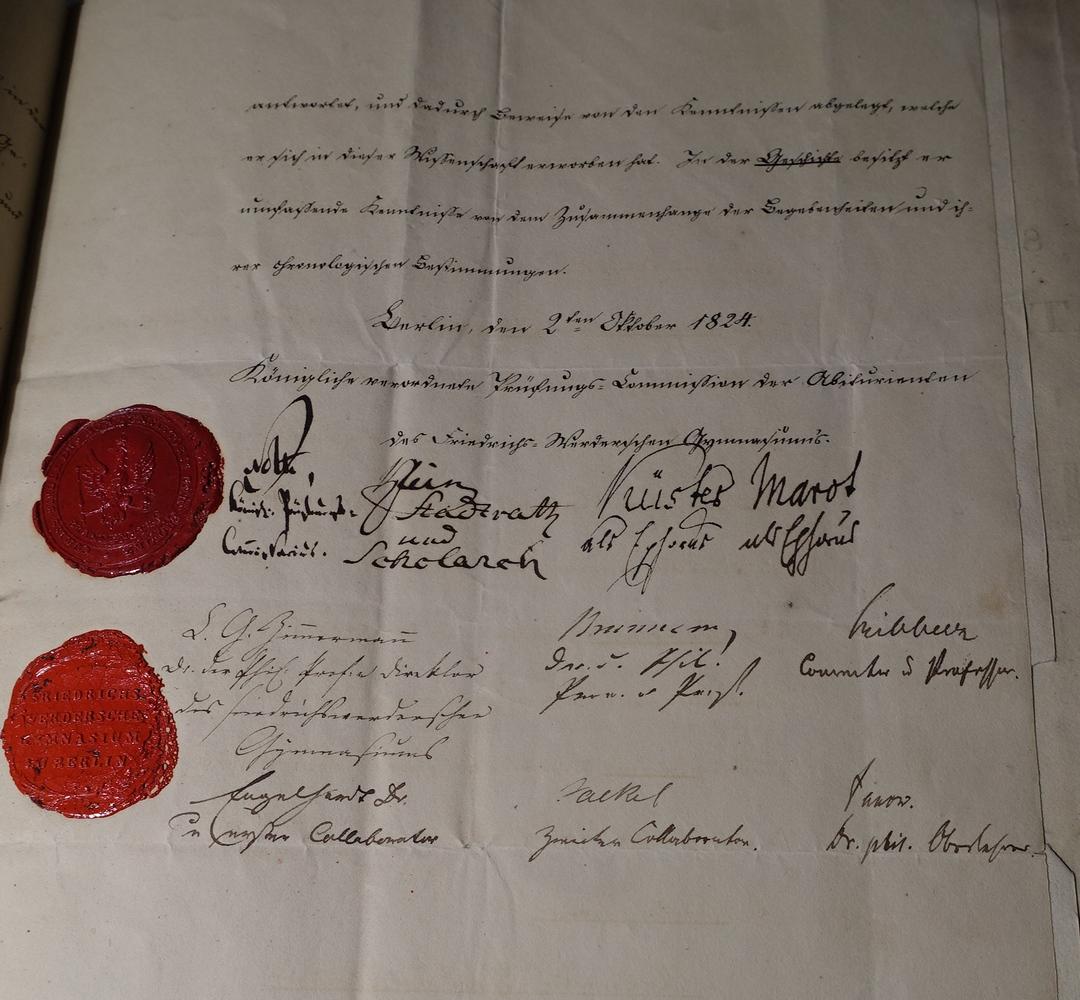 antwortet, und dadurch Beweise von den Kenntnissen abgelegt, welche
er sich in dieser Wissenschaft erworben hat. In der Geschichte besitzt er
umfassende Kenntnisse von dem Zusammenhange der Begebenheiten und ih-
rer chronologischen Bestimmungen.
Berlin, den 2ten Oktober 1824.
Königliche verordnete Prüfungs-Commission der Abiturienten
des Friedrichs-Werderschen Gymnasiums.
Königl. Prüfungs-
Commissarius.
Stadtrath
und
Scholarch
Marot
als Ephorus als Ephorus
Zimmermann
Dr. der Phil. Direktor
des friedrichswerderschen
Gymnasiums
Professor.
Engelhardt Dr.
erster Collaborator
Jäckel
zweiter Collaborator.
Dr. phil. Oberlehrer
FRIEDRICHS
WERDERSCHES
GYMNASIUM
ZU BERLIN